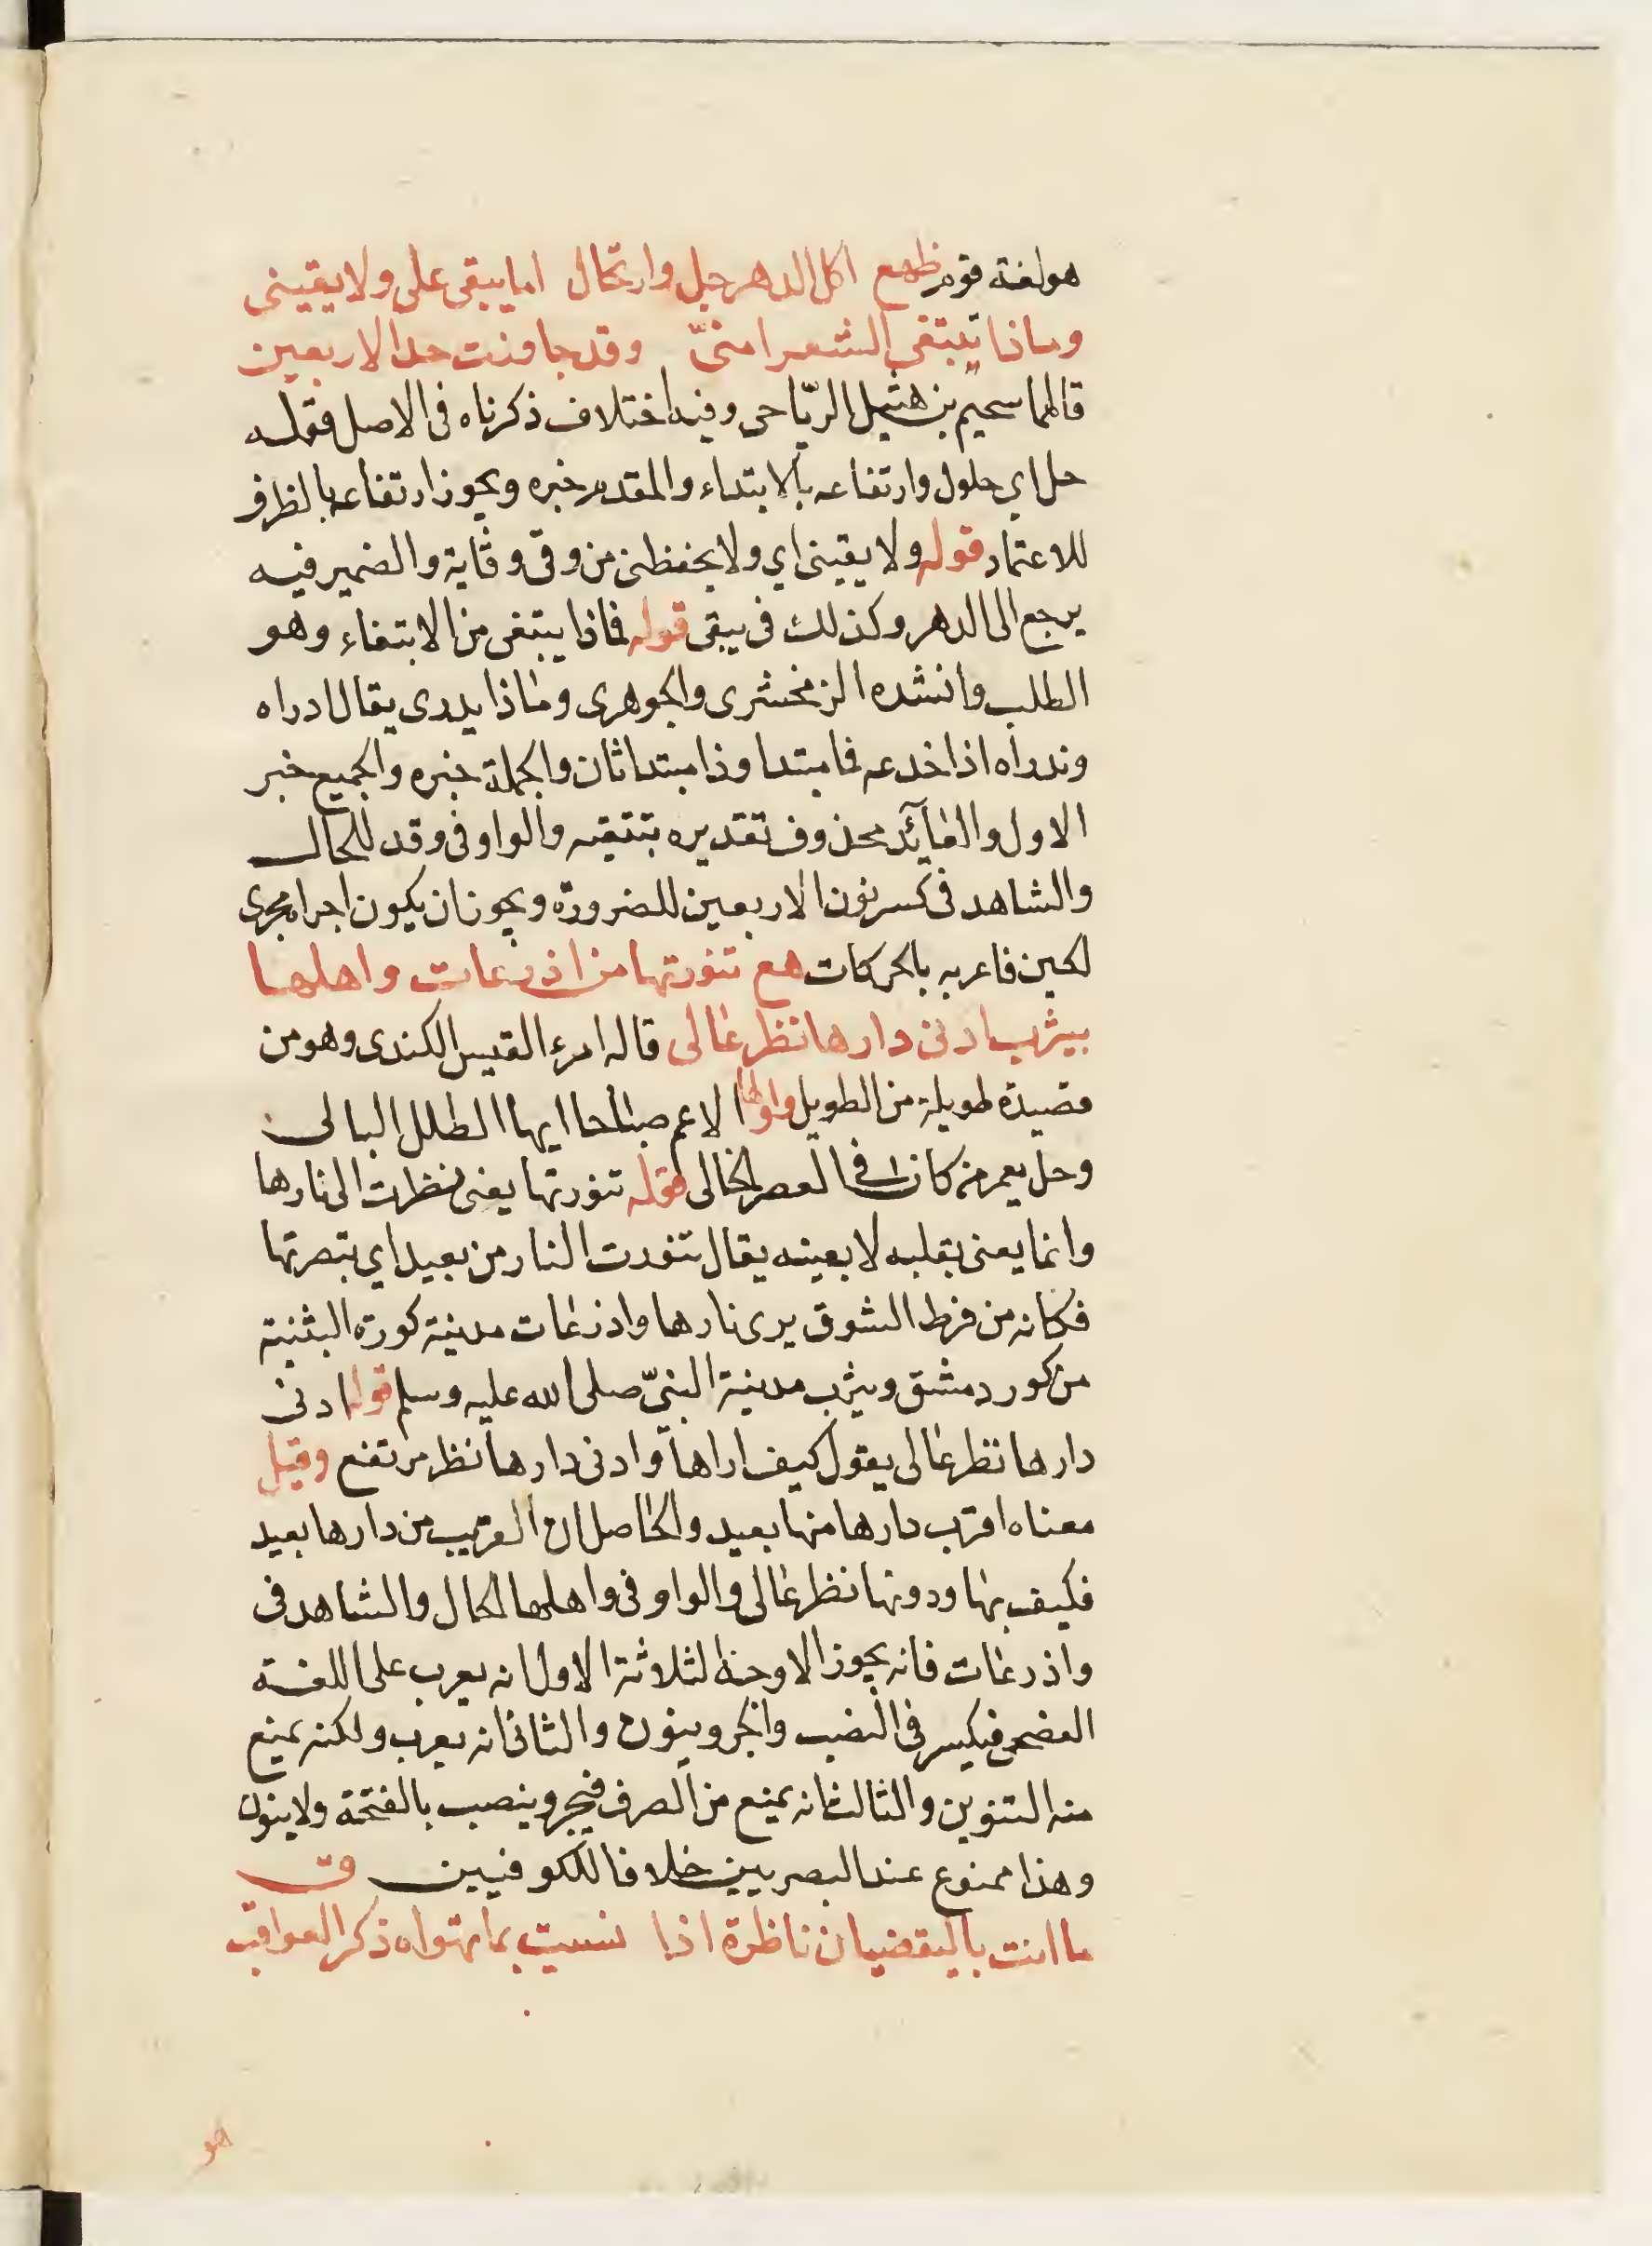 هو لغة قوم ظهع اكل الدهر حل وارتحال اما يبقى على ولا يقينى
وماذا تبتغى الشعرا منىّ وقد جاوزت حد الاربعين
قالهما سحيم بن هثيل الريّاحى وفيه اختلاف ذكرناه فى الاصل فقوله
حل اي حلول وارتفاعه بالابتداء والمقدم خبره ويجوز ارتفاعه بالظرف
للاعتماد قوله ولا يقينى اي ولا يحفظنى من وقى وقاية والضمير فيه
يرجع الى الدهر وكذلك فى يبقى قوله فماذا يبتغى من الابتغاء وهو
الطلب وانشده الزمخشرى والجوهرى وماذا يدرى يقال ادراه
وتدراه اذا خدعه فما مبتدا وذا مبتدا ثان والجملة خبره والجميع خبر
الاول والعآئد محذوف تقديره تبتغيه والواو فى وقد للحال
والشاهد فى كسر نون الاربعين للضرورة ويجوز ان يكون اجراه مجرى
لحين فاعربه بالحركات هع تنورتها من اذرعات واهلها
بيثرب ادنى دارها نظر عالى قاله امرء القيس الكندى وهو من
قصيدة طويلة من الطويل واولها الا عم صباحا ايها الطلل البالى
وحل يعمر من كان فى العصر الخالى قوله تنورتها يعنى نظرت الى نارها
وانما يعنى بقلبه لا بعينه يقال تنورت النار من بعيد اي تبصرتها
فكانه من فرط الشوق يرى نارها واذرعات مدينة كورة البثنية
من كور دمشق ويثرب مدينة النبىّ صلى الله عليه وسلم قوله ادنى
دارها نظر عالى يقول كيف اراها وادنى دارها نظر مرتفع وقيل
معناه اقرب دارها منها بعيد والحاصل ان القريب من دارها بعيد
فكيف بها ودونها نظر عالى والواو فى واهلها للحال والشاهد فى
واذرعات فانه يجوز الاوجه الثلاثة الاول انه يعرب على اللغة
الفصحى فيكسر فى النصب والجر وينون والثانى انه يعرب ولكنه يمنع
منه التنوين والثالث انه يمنع من الصرف فيجر وينصب بالفتحة ولا ينون
وهذا ممنوع عند البصريين خلافا للكوفيين ق
ما انت باليقضان ناظرة اذا نسيت بما تهواه ذكر العواقب
هو